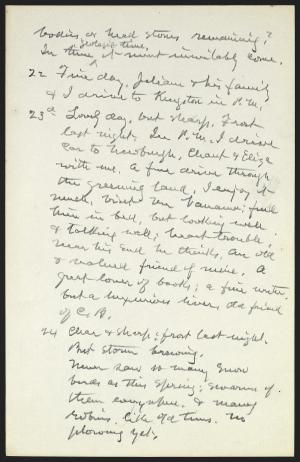 bodies, or head stones remaining?
geologic time,
In time ^ it must inevitably come.
22 Fine day. Julian & his family
& I drive to Kingston in P.M.
23d Lovely day, but sharp. Frost
last night. In P.M. I drive
car to Newburgh, Chant &
with me. A fine drive through
the greening land. I enjoy it
much. Visit Van ; find
him in bed, but looking well
& talking well; heart trouble,
near his end he thinks. An old
& valued friend of mine. A
great lover of books; a fine writer,
but a liver, old friend
of C. B.
24 Clear & sharp; frost last night.
But storm brewing.
Never saw so many snow
birds as this spring; swarms of
them everywhere. & many
robins, like old times. No
plowing yet.